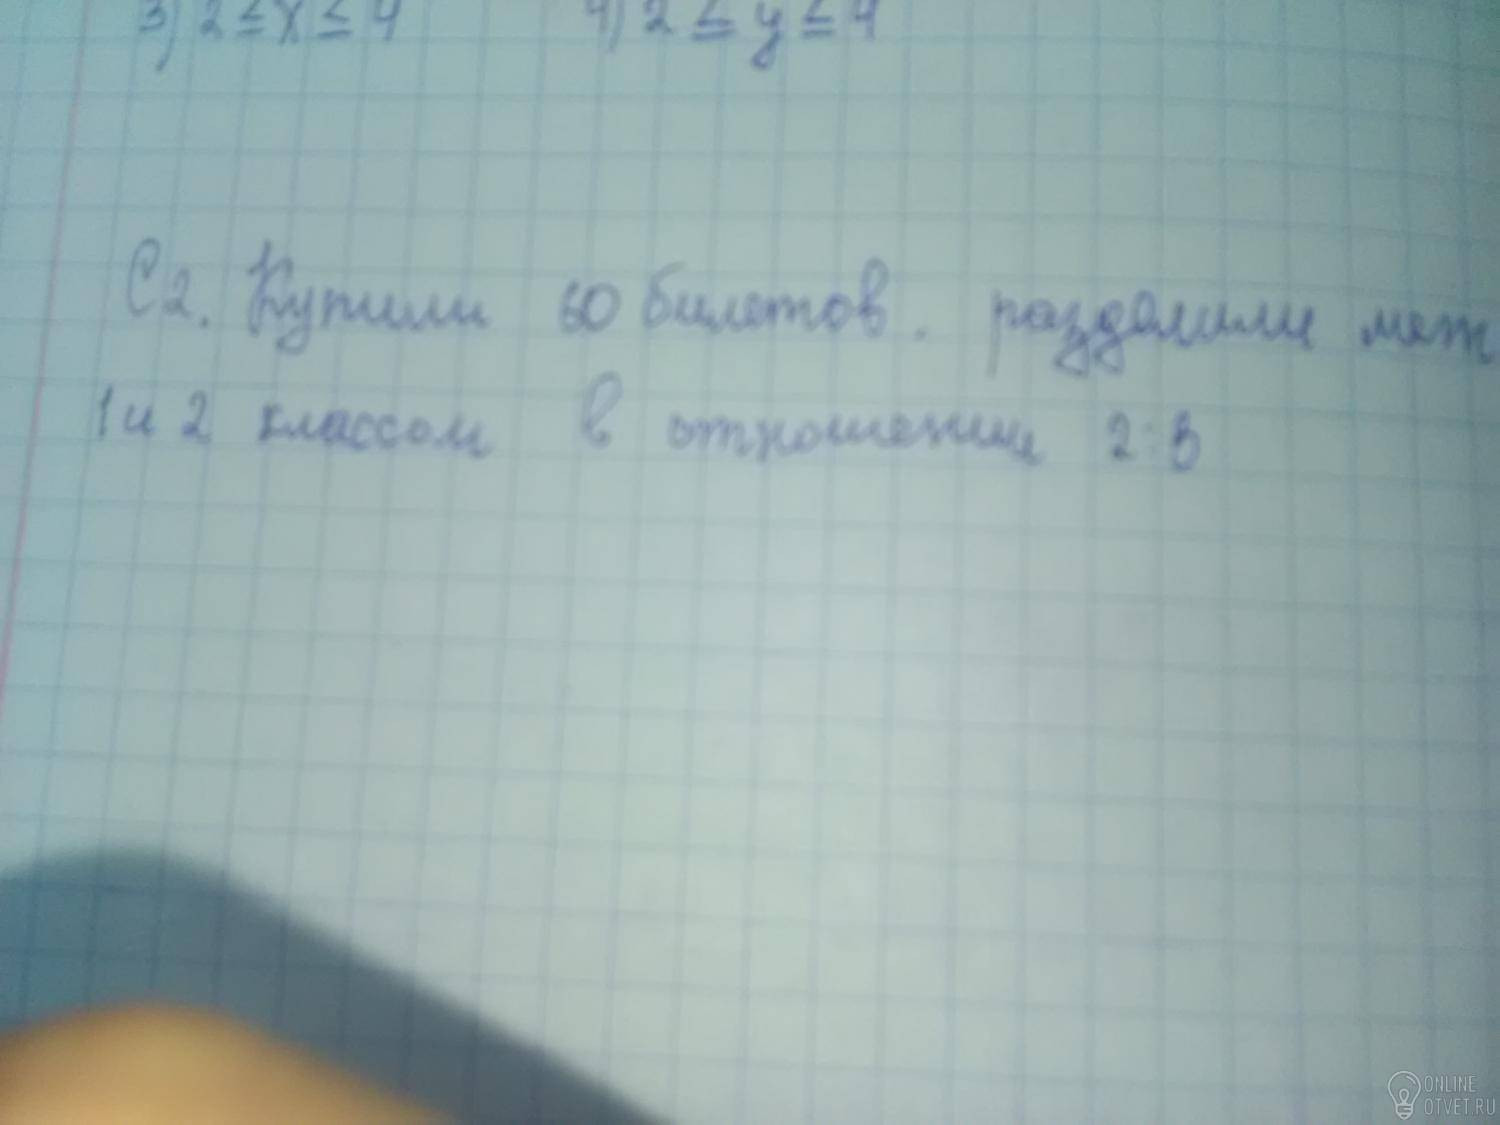 3) 2 ≤ x ≤ 4 4) 2 ≤ y ≤ 4
С2. Купили 60 билетов. разделили меж
1 и 2 классом в отношении 2:3
ONLINE
OTVET.RU